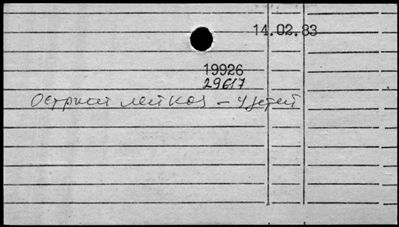 14.02.83
19926
29617
Острый лейкоз – у детей